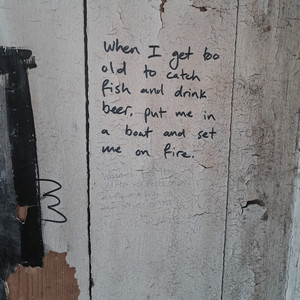 When I get too
old to catch
fish and drink
beer. put me in
a boat and set
me on fire.